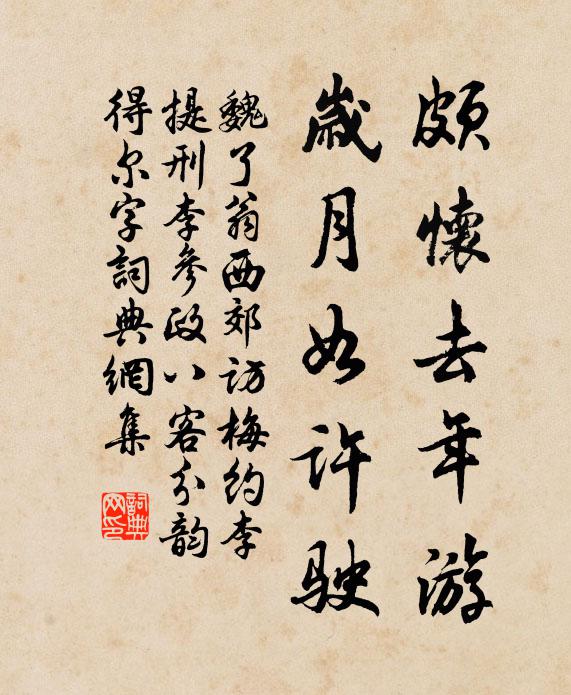 頗懷去年游
歲月如許駛
魏了翁西郊訪梅約李
提刑李參政八客分韵
得尔字詞典網集
詞典网印